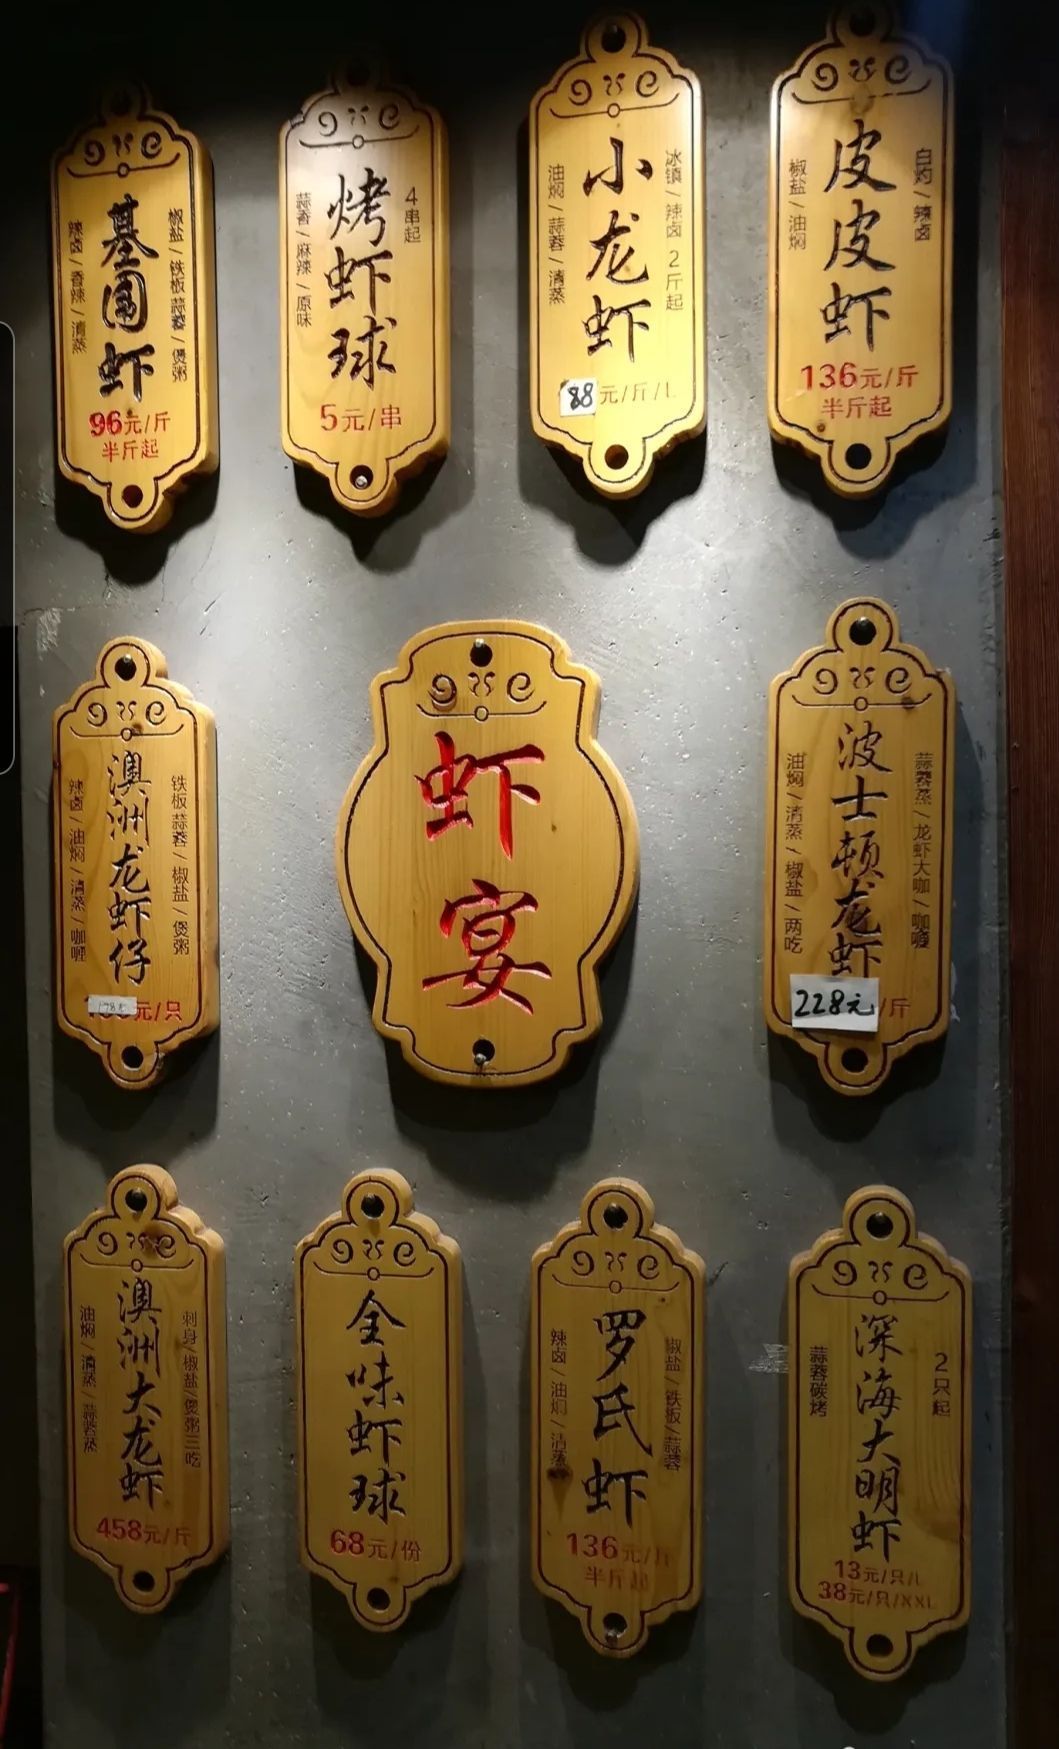 基围虾
椒盐/铁板蒜蓉/煲粥
辣卤/香辣/清蒸
96元/斤
半斤起
烤虾球
4串起
蒜香/麻辣/原味
5元/串
小龙虾
冰镇/辣卤 2斤起
油焖/蒜蓉/清蒸
88元/斤/L
皮皮虾
白灼/辣卤
椒盐/油焖
136元/斤
半斤起
澳洲龙虾仔
铁板蒜蓉/椒盐/煲粥
辣卤/油焖/清蒸/咖喱
元/只
虾宴
波士顿龙虾
蒜蓉蒸/龙虾大咖/咖喱
油焖/清蒸/椒盐/两吃
228元/斤
澳洲大龙虾
刺身/椒盐/煲粥三吃
油焖/清蒸/蒜蓉蒸
458元/斤
全味虾球
68元/份
罗氏虾
椒盐/铁板/蒜蓉
辣卤/油焖/清蒸
136元/斤
半斤起
深海大明虾
2只起
蒜蓉碳烤
13元/只/L
38元/只/XXL